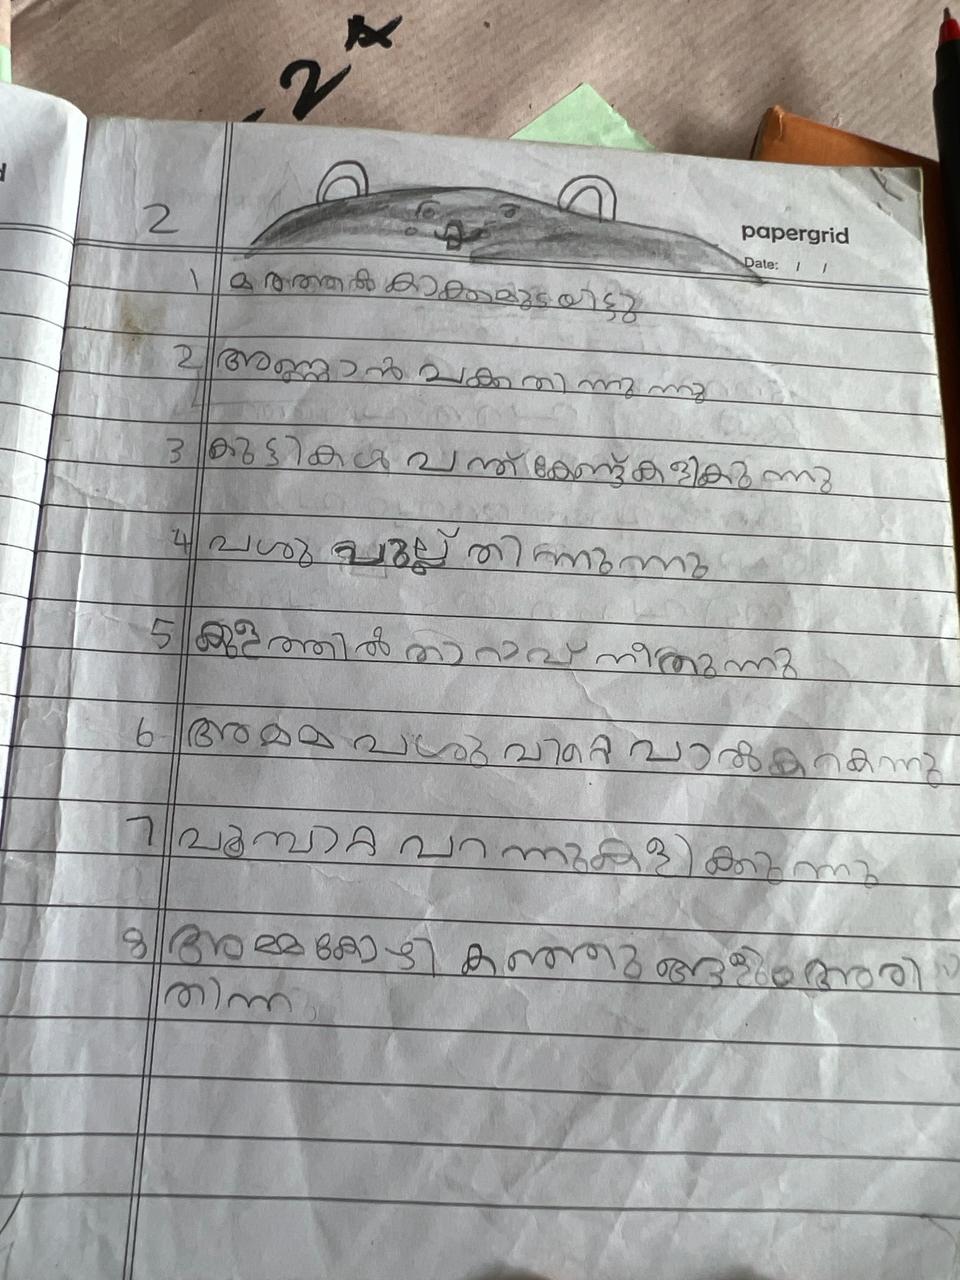 2
papergrid
Date: / /
1 മരത്തിൽ കാക്ക മുട്ടയിട്ടു
2 അണ്ണാൻ ചക്ക തിന്നുന്നു
3 കുട്ടികൾ പന്ത് കൊണ്ട് കളികുന്നു
4 പശു പുല്ല് തിന്നുന്നു
5 കുളത്തിൽ താറാവ് നീന്തുന്നു
6 അമ്മ പശുവിനെ പാൽ കറകന്നു
7 പൂമ്പാറ്റ പറന്നു കളിക്കുന്നു
8 അമ്മകോഴി കുഞ്ഞു ങ്ങളും അരി
തിന്ന